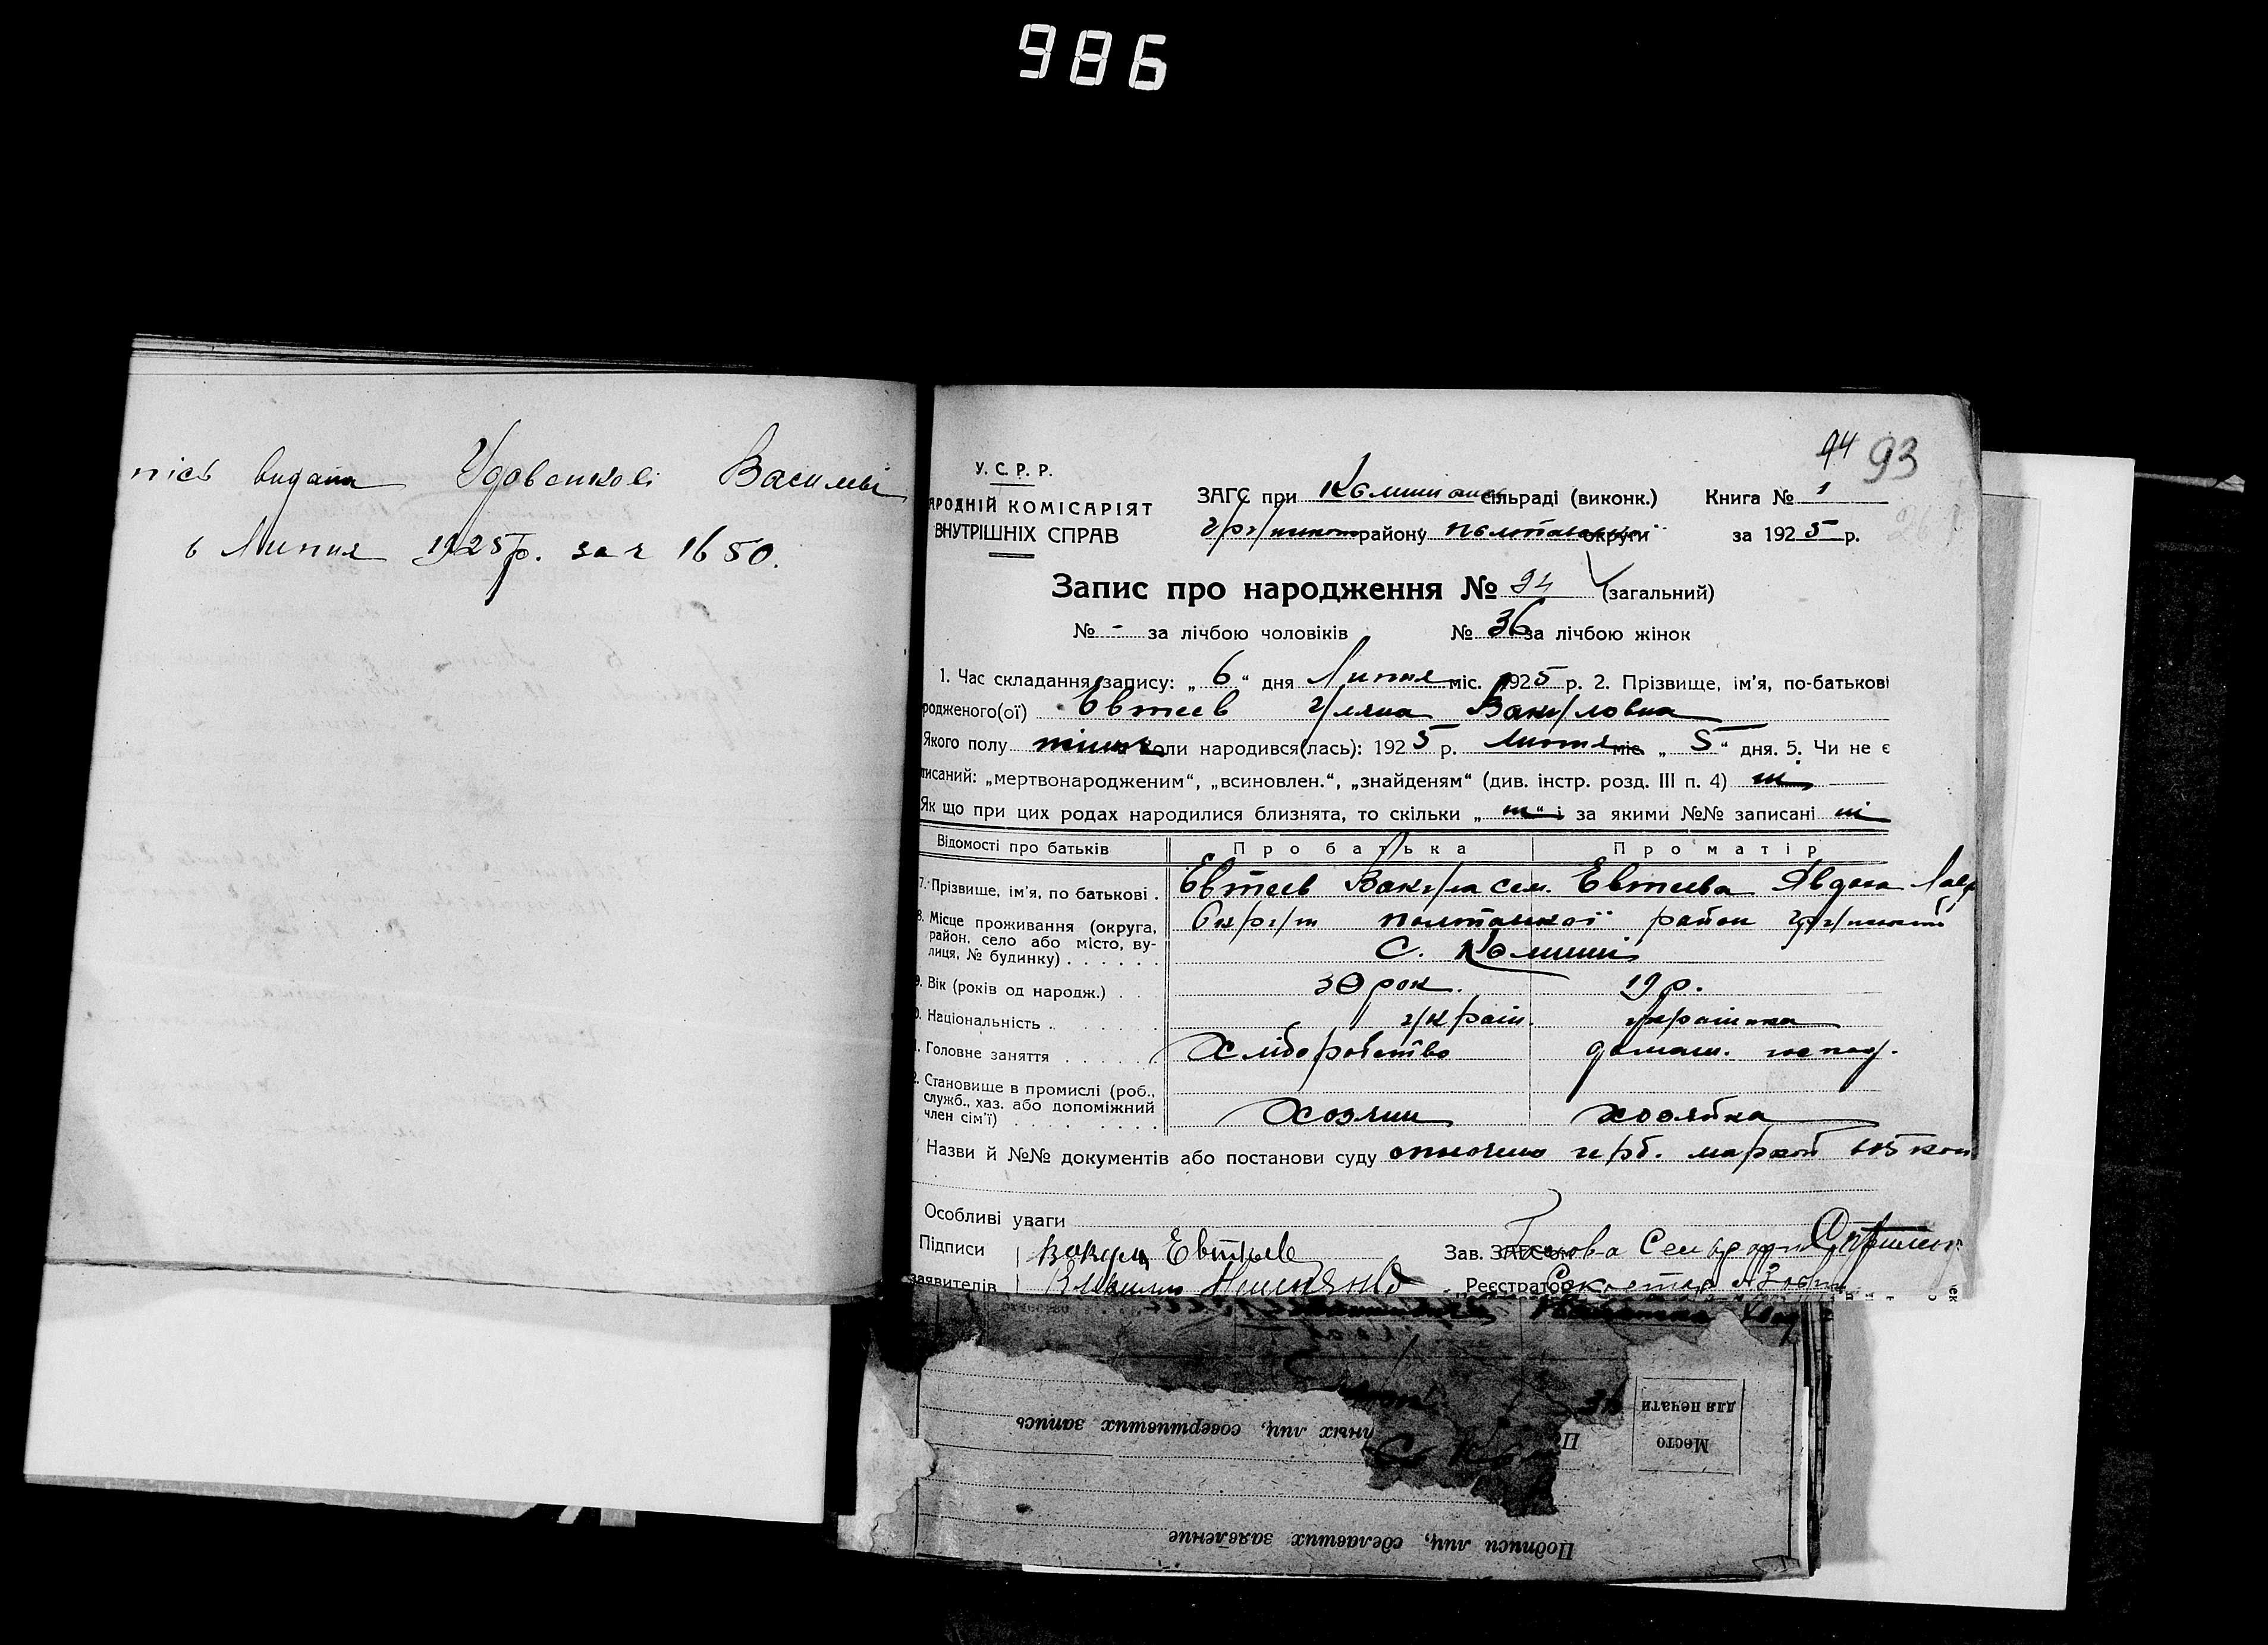 986
пісь видана Удовенкові Василеві
6 Липня 1925 р. за № 1650.
94 93
У. С. Р. Р.
АРОДНІЙ КОМІСАРІЯТ
ВНУТРІШНІХ СПРАВ
ЗАГС при сільраді (виконк.) Книга № 1
району округи за 1925 р.
Запис про народження № 94 (загальний)
№ - за лічбою чоловіків № 36 за лічбою жінок
1. Час складання запису: „ 6 “ дня Липня міс. 1925 р. 2. Прізвище, ім'я, по-батькові
родженого(ої) Евтеев Уляна Вакуловна
Якого полу коли народився(лась): 1925 р. Липня міс. „ 5 “ дня. 5. Чи не є
писаний: „мертвонародженим“, „всиновлен.“, „знайденям“ (див. інстр. розд. III п. 4) ні
Як що при цих родах народилися близнята, то скільки „ ні “ і за якими №№ записані ні
Відомості про батьків Про батька Про матір
7. Прізвище, ім'я, по батькові . Евтеев Вакула Сем. Евтеева Явдоха Лавр
8. Місце проживання (округа, район, село або місто, вулиця, № будинку) . . . . . . Округи полтавської район
с.
9. Вік (років од народж.) . . . 30 рок. 19 р.
0. Національність . . . . . . україн. українка
1. Головне заняття . . . . . . Хліборобство домаш. господ.
2. Становище в промислі (роб., служб., хаз. або допоміжний член сім'ї) . . . . . . . Хозяин хозяйка
Назви й №№ документів або постанови суду оплочено герб. маркой
Особливі уваги
Підписи Вакула Евтеев Зав. ЗАГСОМ Голова Сельради
заявителів Реєстратор Секретар
Место
для печати
нных лиц, совершивших запись
Подписи лиц, сделавших заявление